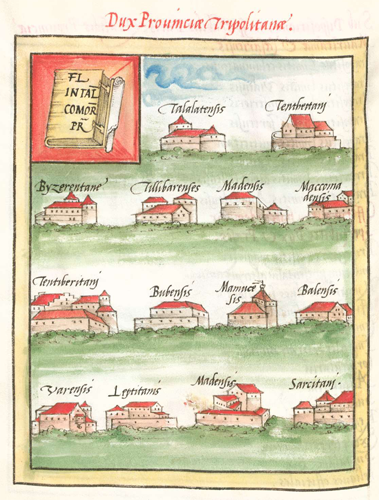 Dux Prouinciæ Tripolitanæ.
FL
INTAL
COMOR̅
PR̅
Talalatensis
Tentbertanj
Byzerentane
Tillibarenses
Madensis
Maccoma
densis
Tentiberitanj
Bubensis
Mamuc̅
sis
Balensis
Varensis
Leptitanis
Madensis
Sarcitanj.